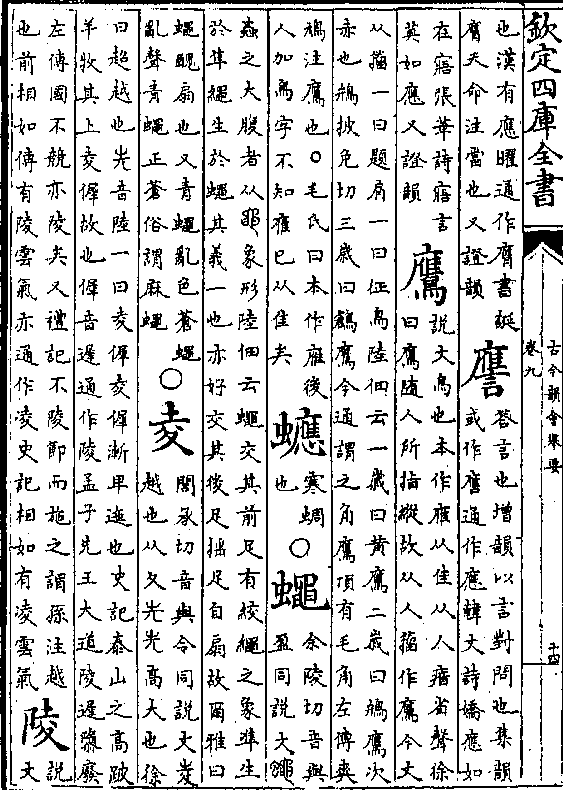 欽定四庫全書
古今韻會舉要
卷九
十四
也漢有應曜通作膺書誕
膺天命注當也又證韻
譍
答言也增韻以言對問也集韻
或作噟通作應韓文詩嬌應如
在寤張華詩寤言
莫如應又證韻
鷹
說文鳥也本作䧹从隹从人瘖省聲徐
曰鷹隨人所指縱故从人籕作鷹今文
从籕一曰題肩一曰征鳥陸佃云一歲曰黃鷹二歲曰鴘鷹次
赤也鴘披免切三歲曰鷂鷹今通謂之角鷹頂有毛角左傳爽
鳩注鷹也○毛氏曰本作䧹後
人加鳥字不知䧹已从隹矣
蠯
寒蜩
也
○
蠅
余陵切音與
盈同說文
蟲之大腹者从黽象形陸佃云蠅交其前足有絞繩之象準生
於準繩生於蠅其義一也亦好交其後足搖足自扇故爾雅曰
蠅醜扇也又青蠅亂色蒼蠅
亂聲青蠅正蒼俗謂麻蠅
○
夌
閭承切音與令同說文夌
越也从夊光光高大也徐
曰超越也光音陸一曰夌㣤夌㣤漸卑迤也史記泰山之高跛
羊牧其上夌㣤故也㣤音遲通作陵孟子先王大道陵遲隳廢
左傳國不競亦陵矣又禮記不陵節而施之謂孫注越
也前相如傳有陵雲氣亦通作凌史記相如有凌雲氣
陵
說
文